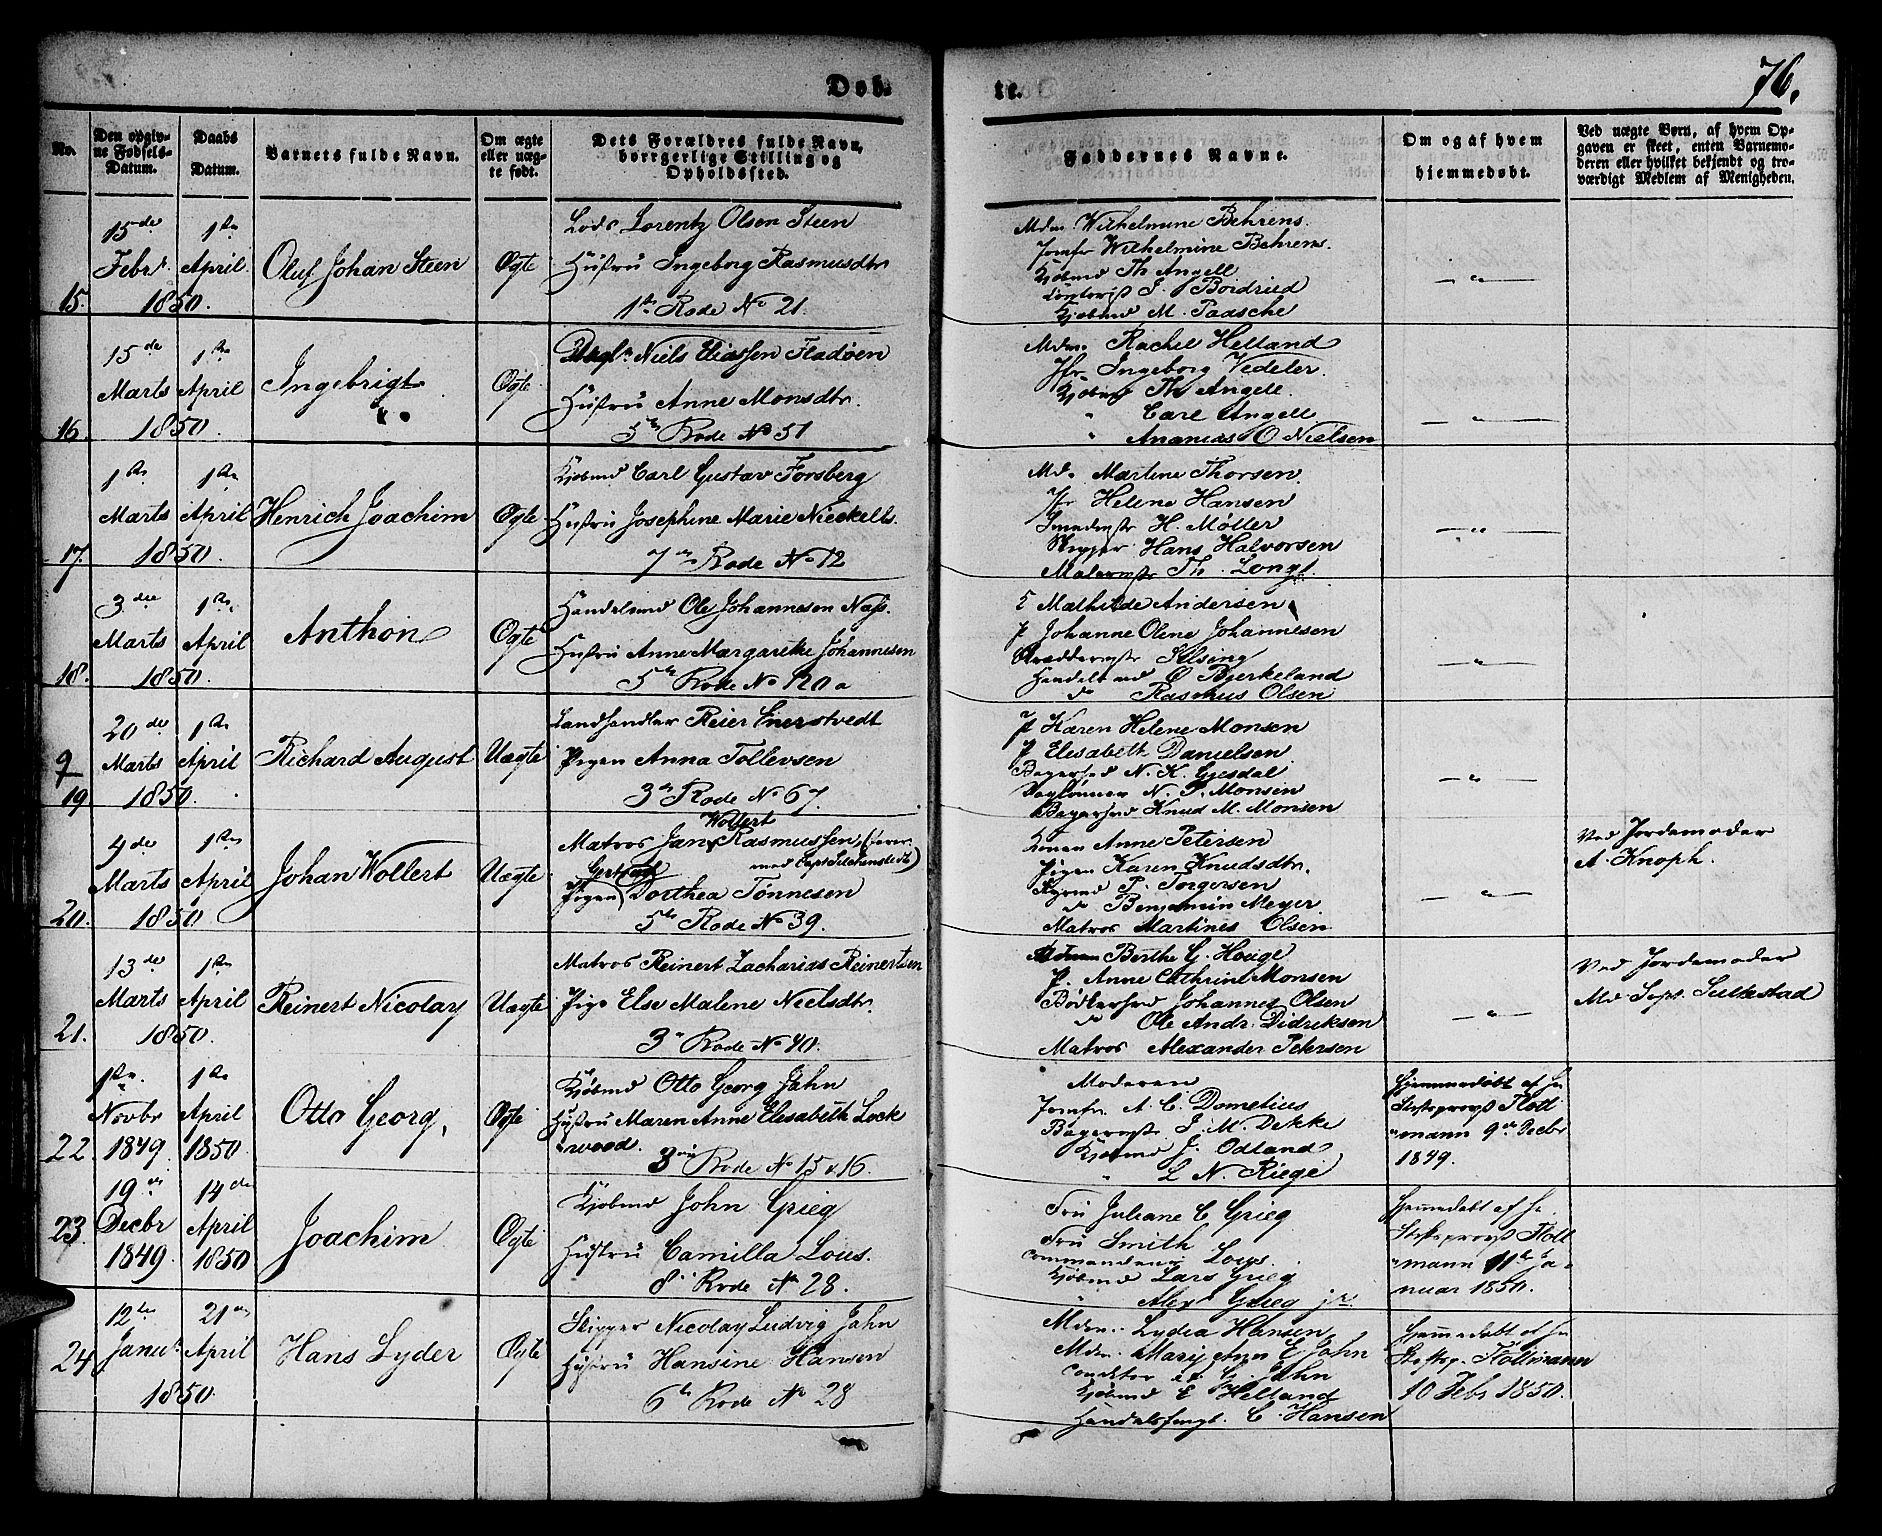 Døb-
te.
76.
No.
Den opgiv-
ne Fødsels-
Datum.
Daabs
Datum.
Barnets fulde Navn.
Om ægte
eller uæg-
te født.
Dets Forældres fulde Navn,
borrgerlige Stilling og
Opholdssted.
Faddernes Navne.
Om og af hvem
hjemmedøbt.
Ved uægte Børn, af hvem Op-
gaven er skeet, enten Barnemo-
deren eller hvilket bekjendt og tro-
værdigt Medlem af Menigheden.
15.
15de Febr. 1850.
1ste April
Oluf Johan Steen
Ægte
Lods Lorentz Olsen Steen
Hustru Ingeborg Rasmusdtr
1ste Rode No 21.
Mdm. Wilhelmine Behrens.
Jomfr Wilhelmine Behrens.
Kjøbmd Th Angell
Contorist J. Boidried
Kjøbmd M. Paasche
— " —
16.
15de Marts 1850.
1ste April
Ingebrigt
Ægte
Niels Eliassen Fladøen
Hustru Anne Monsdtr.
5te Rode No 51
Mdm. Rachel Helland
Jfr. Ingeborg Vedeler.
Kjøbmd Th Angell
" Carl Angell
" Ananias O Nielsen
— " —
17.
1ste Marts 1850
1ste April
Henrich Joachim
Ægte
Kjøbmd Carl Gustav Forsberg
Hustru Josephine Marie Nieckells.
7de Rode No 12
Md. Martine Thorsen.
Jfr Helene Hansen
Smedemstr H. Møller
Skipper Hans Halvorsen
Malermstr Th. Longt.
— " —
18.
3die Marts 1850.
1ste April
Anthon
Ægte
Handelsmd Ole Johannesen Næss.
Hustru Anne Margarethe Johannesen
5te Rode No 120 a
Mathilde Andersen
P Johanne Olene Johannesen
Skreddermstr Kilsing
Handelsmd O Bjerkeland
do Rasmus Olsen
— " —
9
19
20de Marts 1850.
1ste April
Richard August
Uægte
Landhandler Reier Enerstvedt
Pigen Anna Tollevsen
3die Rode No 67.
P Karen Helene Monsen
P Elisabeth Danielsen
Bagersvd N. K. Gjesdal
Dagleinner N. P. Monsen
Bagersvd Knud M. Monsen
— " —
20.
4de Marts 1850
1ste April
Johan Wollert
Uægte
Wollert
Matros Jan Rasmussen
Pigen Dorthea Tønnesen
5te Rode No 39.
Konen Anne Petersen
Pigen Karen Knudsdtr.
P. Torgersen
do Benjamin Meyer
Matros Martines Olsen
— " —
Ved Jordemoder
A. Knoph.
21.
13de Marts 1850.
1ste April
Reinert Nicolay
Uægte
Matros Reinert Zacharias Reinertsen
Pige Else Malene Nielsdtr.
3die Rode No 40.
Berthe G. Houge
P. Anne Cathrine Monsen
Bødkersvd Johannes Olsen
do Ole Andr. Didriksen
Matros Alexander Petersen
— " —
Ved Jordemoder
Md Sept. Sulkestad
22
1ste Novbr 1849
1ste April 1850
Otto Georg,
Ægte
Kjøbmd Otto Georg Jahn
Hustru Maren Anne Elisabeth Lock
"wood.
3die Rode No 15 & 16.
Moderen
Jomfr. A. C. Dometius
Bagermstr. J. M. Dekke
Kjøbmd J. Odland
" L N. Riege
Hjemmedøbt af Hr
Stiftsprovst Kolt
"mann 9de Decbr
1849.
23.
19de Decbr 1849.
14de April 1850
Joachim
Ægte
Kjøbmd John Grieg
Hustru Camilla Lous.
8de Rode No 28.
Fru Juliane C Grieg
Fru Smith
Commandeur Lous.
Kjøbmd Lars Grieg
" Alexr Grieg jr.
Hjemmedøbt af Hr.
Stiftsprovst Kolt
"mann 11te Ja-
nuar 1850.
24
12te Janur 1850.
21de April
Hans Lyder
Ægte
Skipper Nicolay Ludvig Jahn
Hustru Hansine Hansen
6te Rode No 28
Mdm. Lydia Hansen
Mdm. Mary Ann E Jahn
Conditor G. Jahn
Kjøbmd E Helland
Handelsfuldm. C. Hansen
Hjemmedøbt af Hr
Stiftsp. Koltmann
10 Febr 1850.